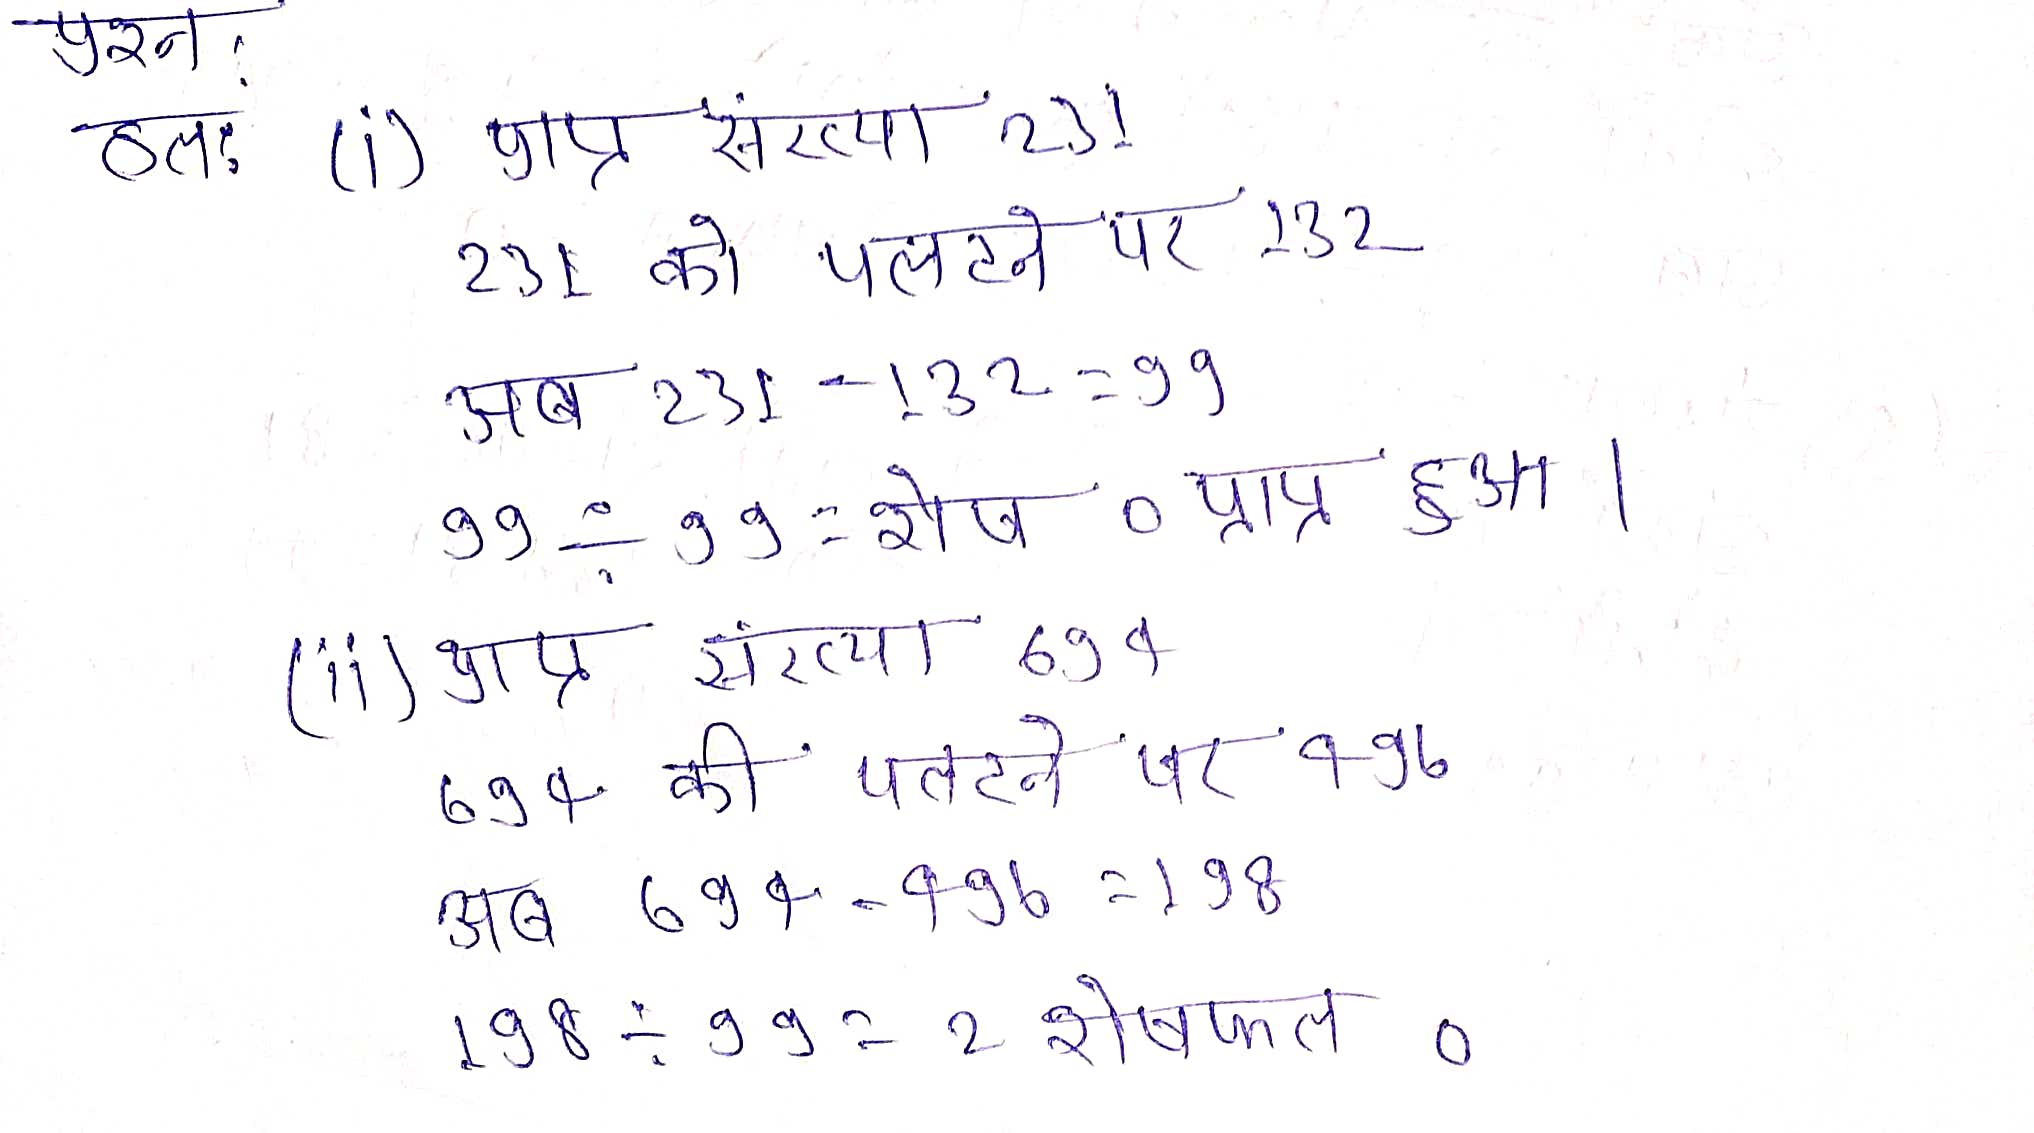 प्रश्न:
हल: (i) प्राप्त संख्या 231
231 को पलटने पर 132
अब 231 - 132 = 99
99 ÷ 99 = शेष 0 प्राप्त हुआ |
(ii) प्राप्त संख्या 694
694 की पलटने पर 496
अब 694 - 496 = 198
198 ÷ 99 = 2 शेषफल 0